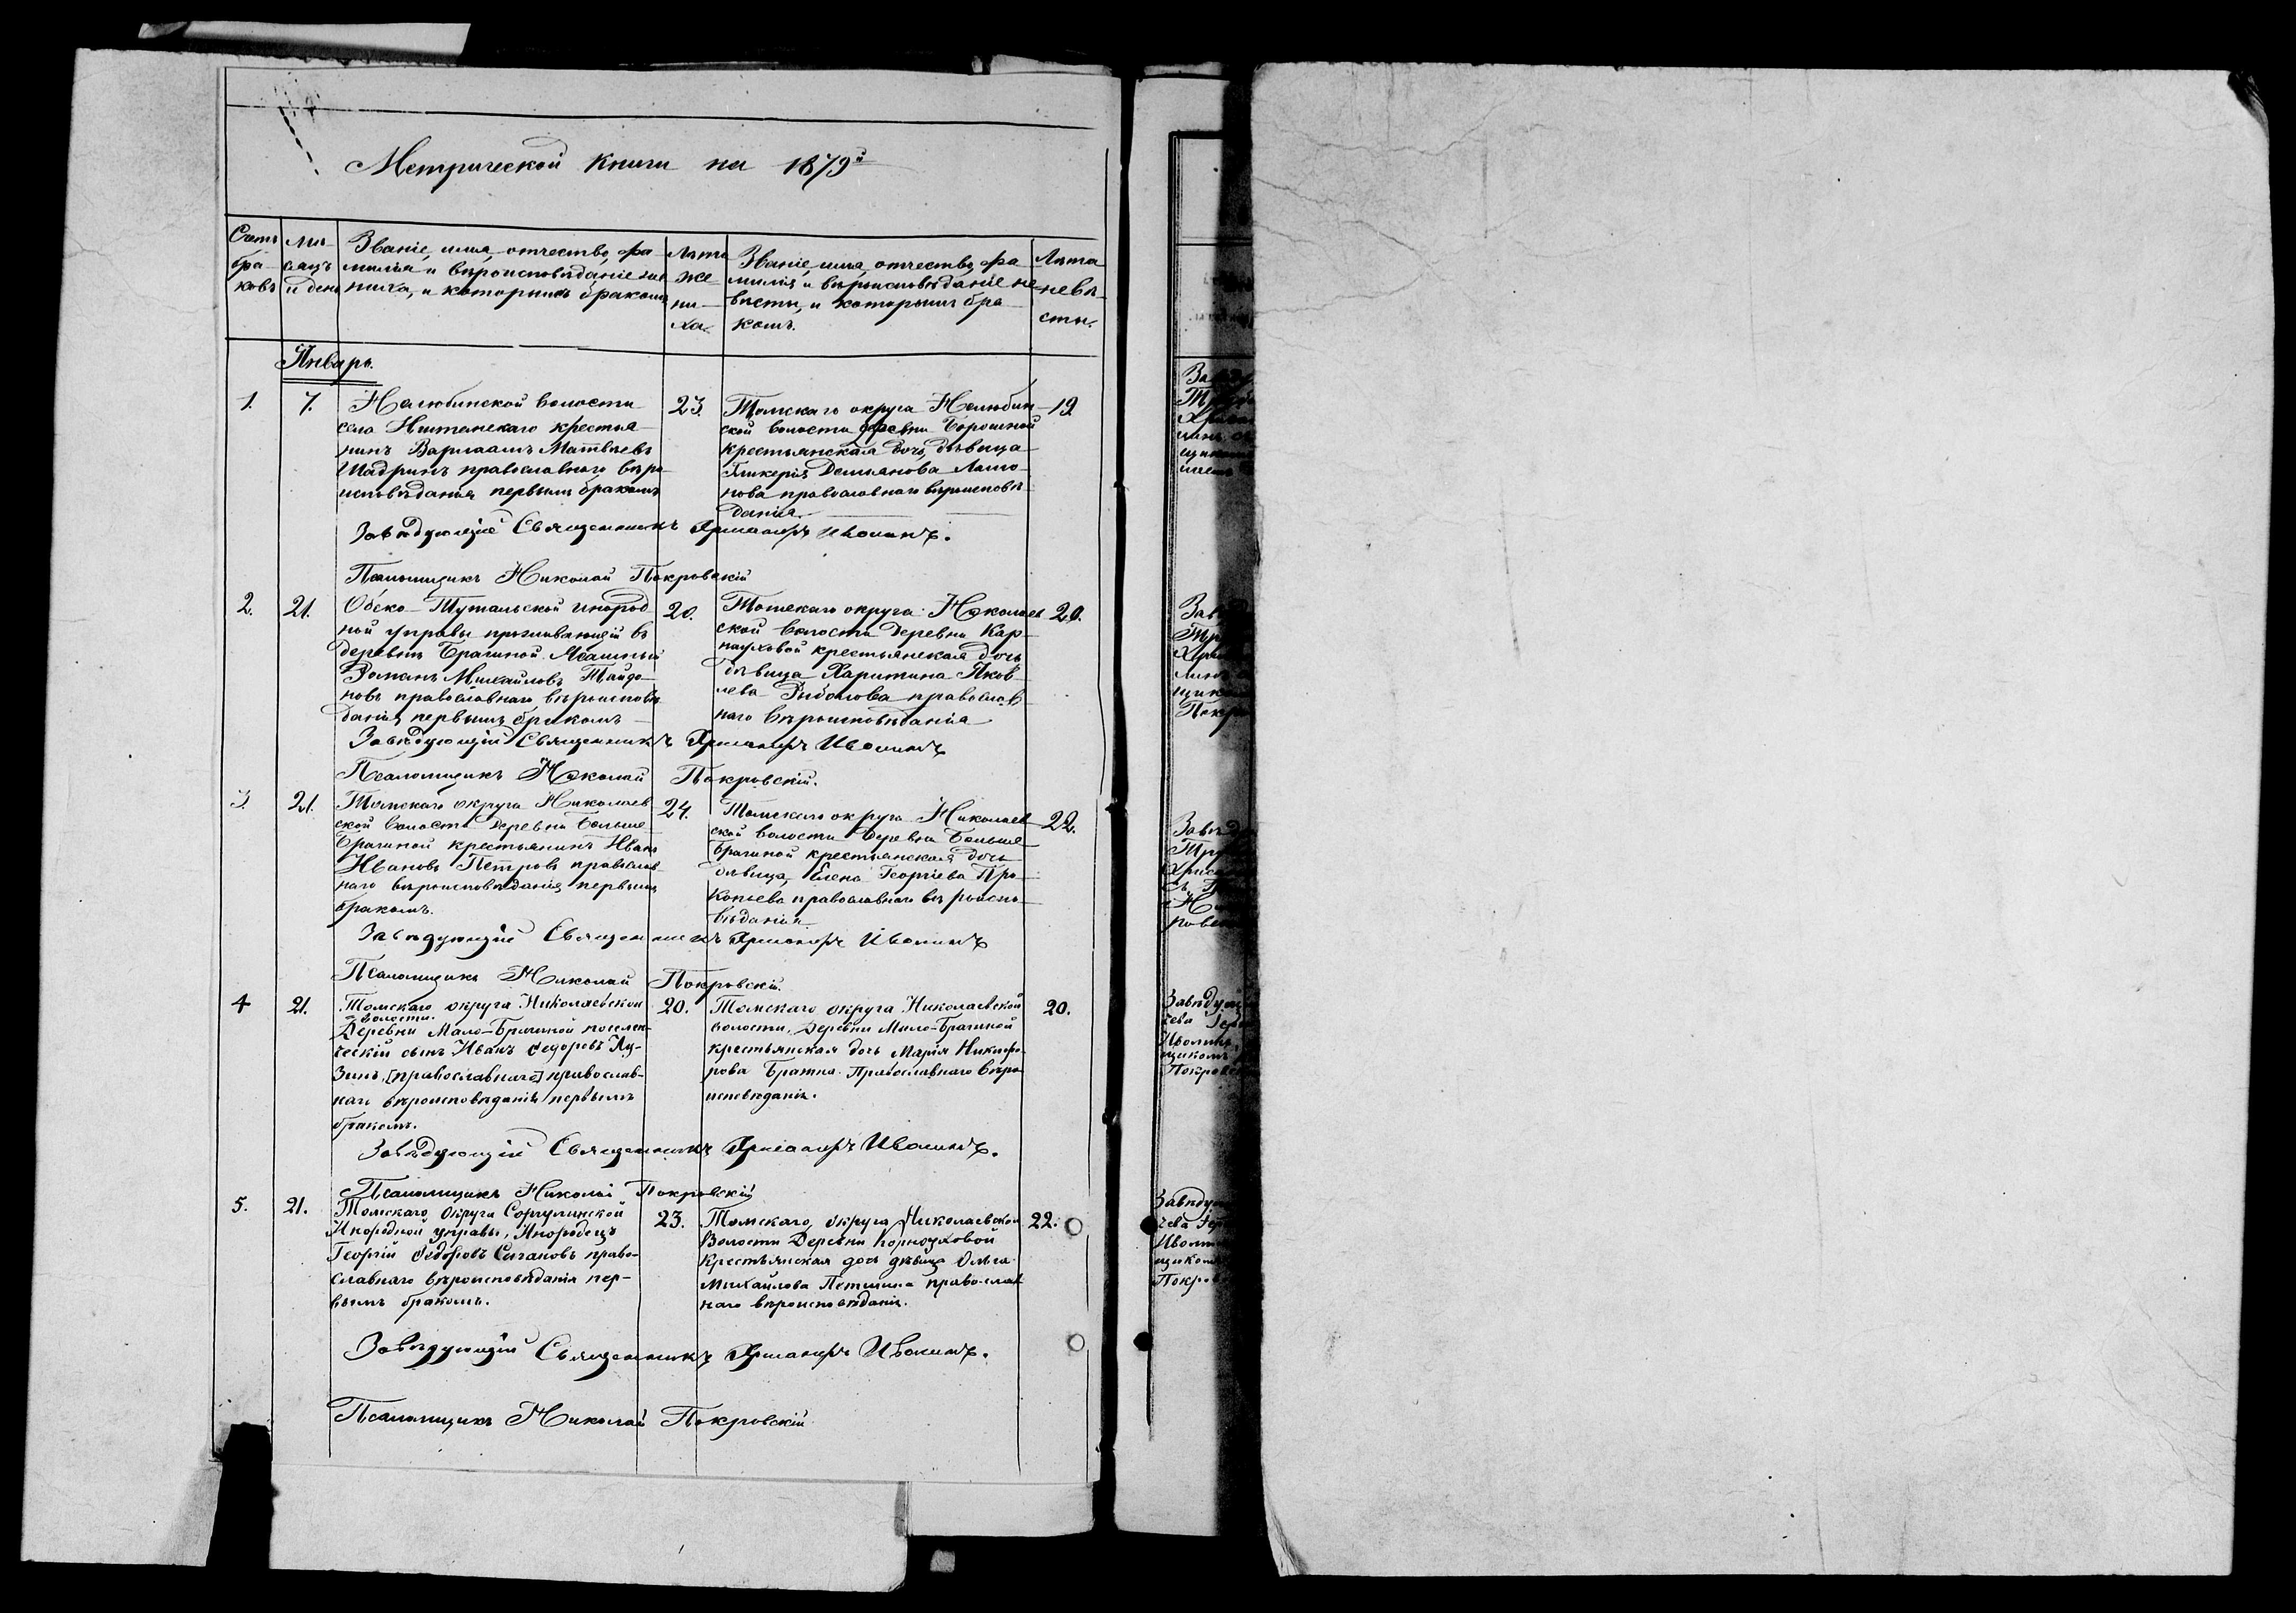 Метрической книги на 1879й
Счетъ бра-ковъ
Мѣ-сяцъ и день
Званіе, имя, отчество, фа-
милія и вѣроисповѣданіе же-
ниха, и которымъ бракомъ
Лѣта же-ни-ха.
Званіе, имя, отчество, фа-
милія и вѣроисповѣданіе не-
вѣсты, и которымъ бра-
комъ.
Лѣта невѣ-сты.
Январь.
1.
7.
Нелюбинской волости
села Иштанскаго крестья-
нинъ Варлаамъ Матвѣевъ
Шадринъ православнаго вѣро-
исповѣданія первымъ бракомъ
23.
Томскаго округа Нелюбин-
ской волости деревни
крестьянская дочь дѣвица
Гликерія Демьянова
православнаго вѣроисповѣ-
данія.
19
Завѣдующій Священникъ Иволинъ.
Псаломщикъ Николай Покровскій
2.
21.
Обско-Тутальской инород-
ной управы проживающій въ
деревнѣ Брагиной
Романъ Михайловъ Тайдо-
новъ православнаго вѣроисповѣ-
данія первымъ бракомъ
20.
Томскаго округа Николаев
ской волости деревни Кар-
науховой крестьянская дочь
дѣвица Харитина Яков-
лева Рыбалова православ-
наго вѣроисповѣданія
20.
Завѣдующій Священникъ Иволинъ
Псаломщикъ Николай Покровскій.
3.
21.
Томскаго округа Николаев
ской волости деревни Больше-
Брагиной крестьянинъ Иванъ
Ивановъ Петровъ православ-
наго вѣроисповѣданія первымъ
бракомъ.
24.
Томскаго округа Николаев
ской волости деревни Больше-
Брагиной крестьянская дочь
дѣвица Елена Георгіева Про-
копьева православнаго вѣроиспо-
вѣданія
22.
Завѣдующій Священникъ Иволинъ
Псаломщикъ Николай Покровскій.
4
21.
Томскаго округа Николаевской
волости.
Деревни Мало-Брагиной поселен-
ческій сынъ Иванъ Федоровъ Лу-
зинъ, [православнаго] православ-
наго вѣроисповѣданія первымъ
бракомъ.
20.
Томскаго округа Николаевской
волости, Деревни Мало-Брагиной
крестьянская дочь Марія Никифо-
рова Православнаго вѣро-
исповѣданія.
20.
Завѣдующій Священникъ Иволинъ.
Псаломщикъ Николай Покровскій
5.
21.
Томскаго Округа
Инородной управы, Инородецъ
Георгій Федоровъ право-
славнаго вѣроисповѣданія пер-
вымъ бракомъ.
23.
Томскаго округа Николаевской
Волости Деревни Корноуховой
крестьянская дочь дѣвица Ольга
Михайлова православ
наго вѣроисповѣданія.
22.
Завѣдующій Священникъ Иволинъ.
Псаломщикъ Николай Покровскій